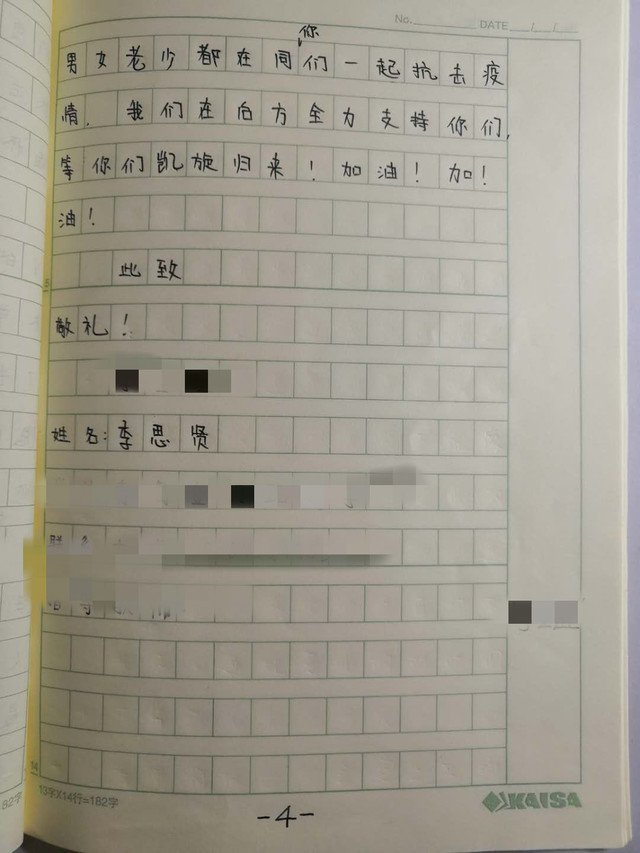 No. DATE / /
你
男女老少都在同们一起抗去疫
情，我们在后方全力支持你们，
等你们凯旋归来！加油！加！
油！
5
此致
敬礼！
姓名：李思贤
14
13字X14行=182字
82字
-4-
KAISA